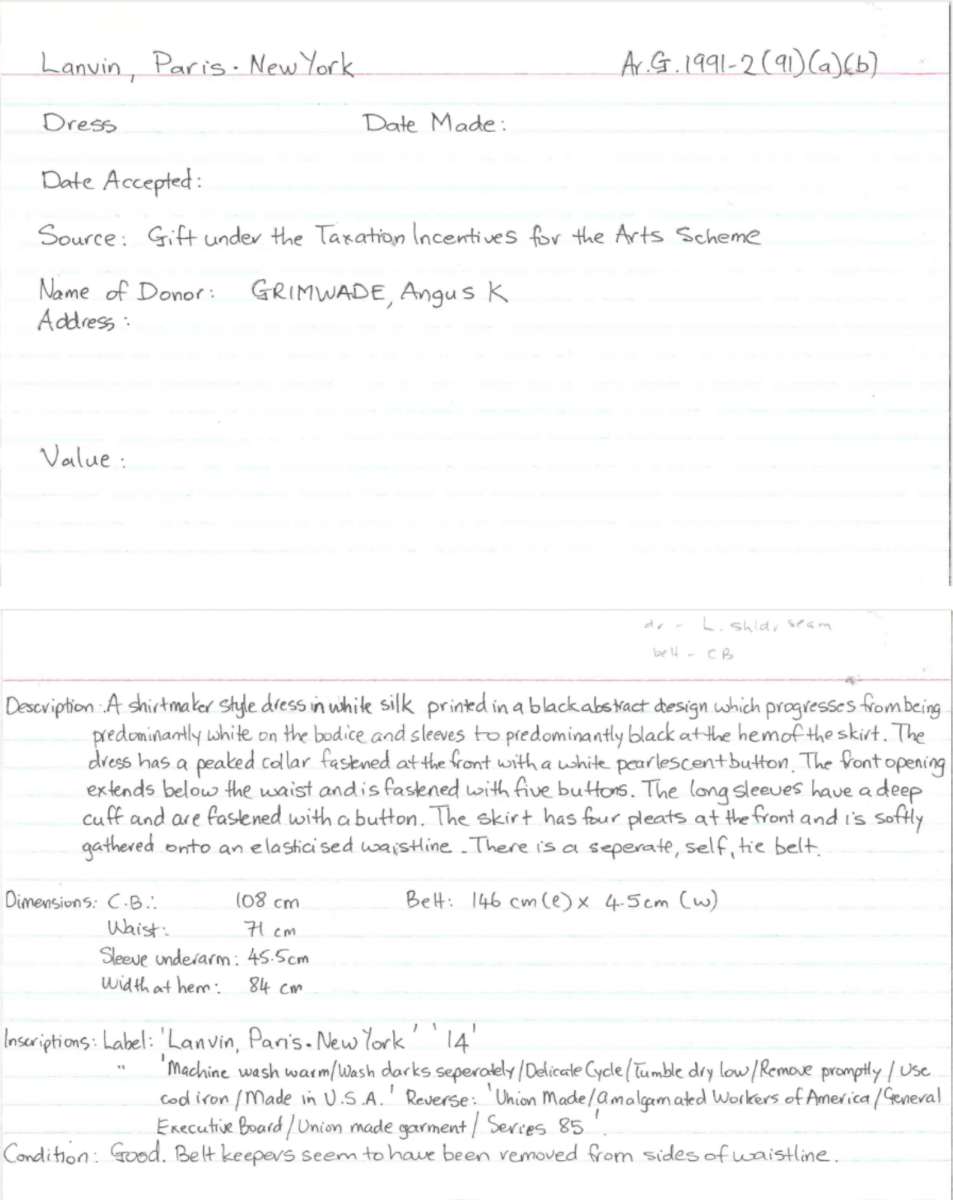 Lanvin, Paris. New York Ar.G.1991-2(91)(a)(b)
Dress Date Made:
Date Accepted:
Source: Gift under the Taxation Incentives for the Arts Scheme
Name of Donor: GRIMWADE, Angus K
Address:
Value:
dr - L. shldr seam
belt - CB
Description: A shirtmaker style dress in white silk printed in a black abstract design which progresses from being
predominantly white on the bodice and sleeves to predominantly black at the hem of the skirt. The
dress has a peaked collar fastened at the front with a white pearlescent button. The front opening
extends below the waist and is fastened with five buttons. The long sleeves have a deep
cuff and are fastened with a button. The skirt has four pleats at the front and is softly
gathered onto an elasticised waistline. There is a seperate, self, tie belt.
Dimensions: C.B.: 108 cm Belt: 146 cm (l) x 4.5cm (w)
Waist: 71 cm
Sleeve underarm: 45.5cm
Width at hem: 84 cm
Inscriptions: Label: 'Lanvin, Paris. New York' '14'
" 'Machine wash warm/Wash darks seperately/Delicate Cycle/Tumble dry low/Remove promptly/Use
cool iron/Made in U.S.A.' Reverse: 'Union Made/Amalgamated Workers of America/General
Executive Board/Union made garment/Series 85'.
Condition: Good. Belt keepers seem to have been removed from sides of waistline.